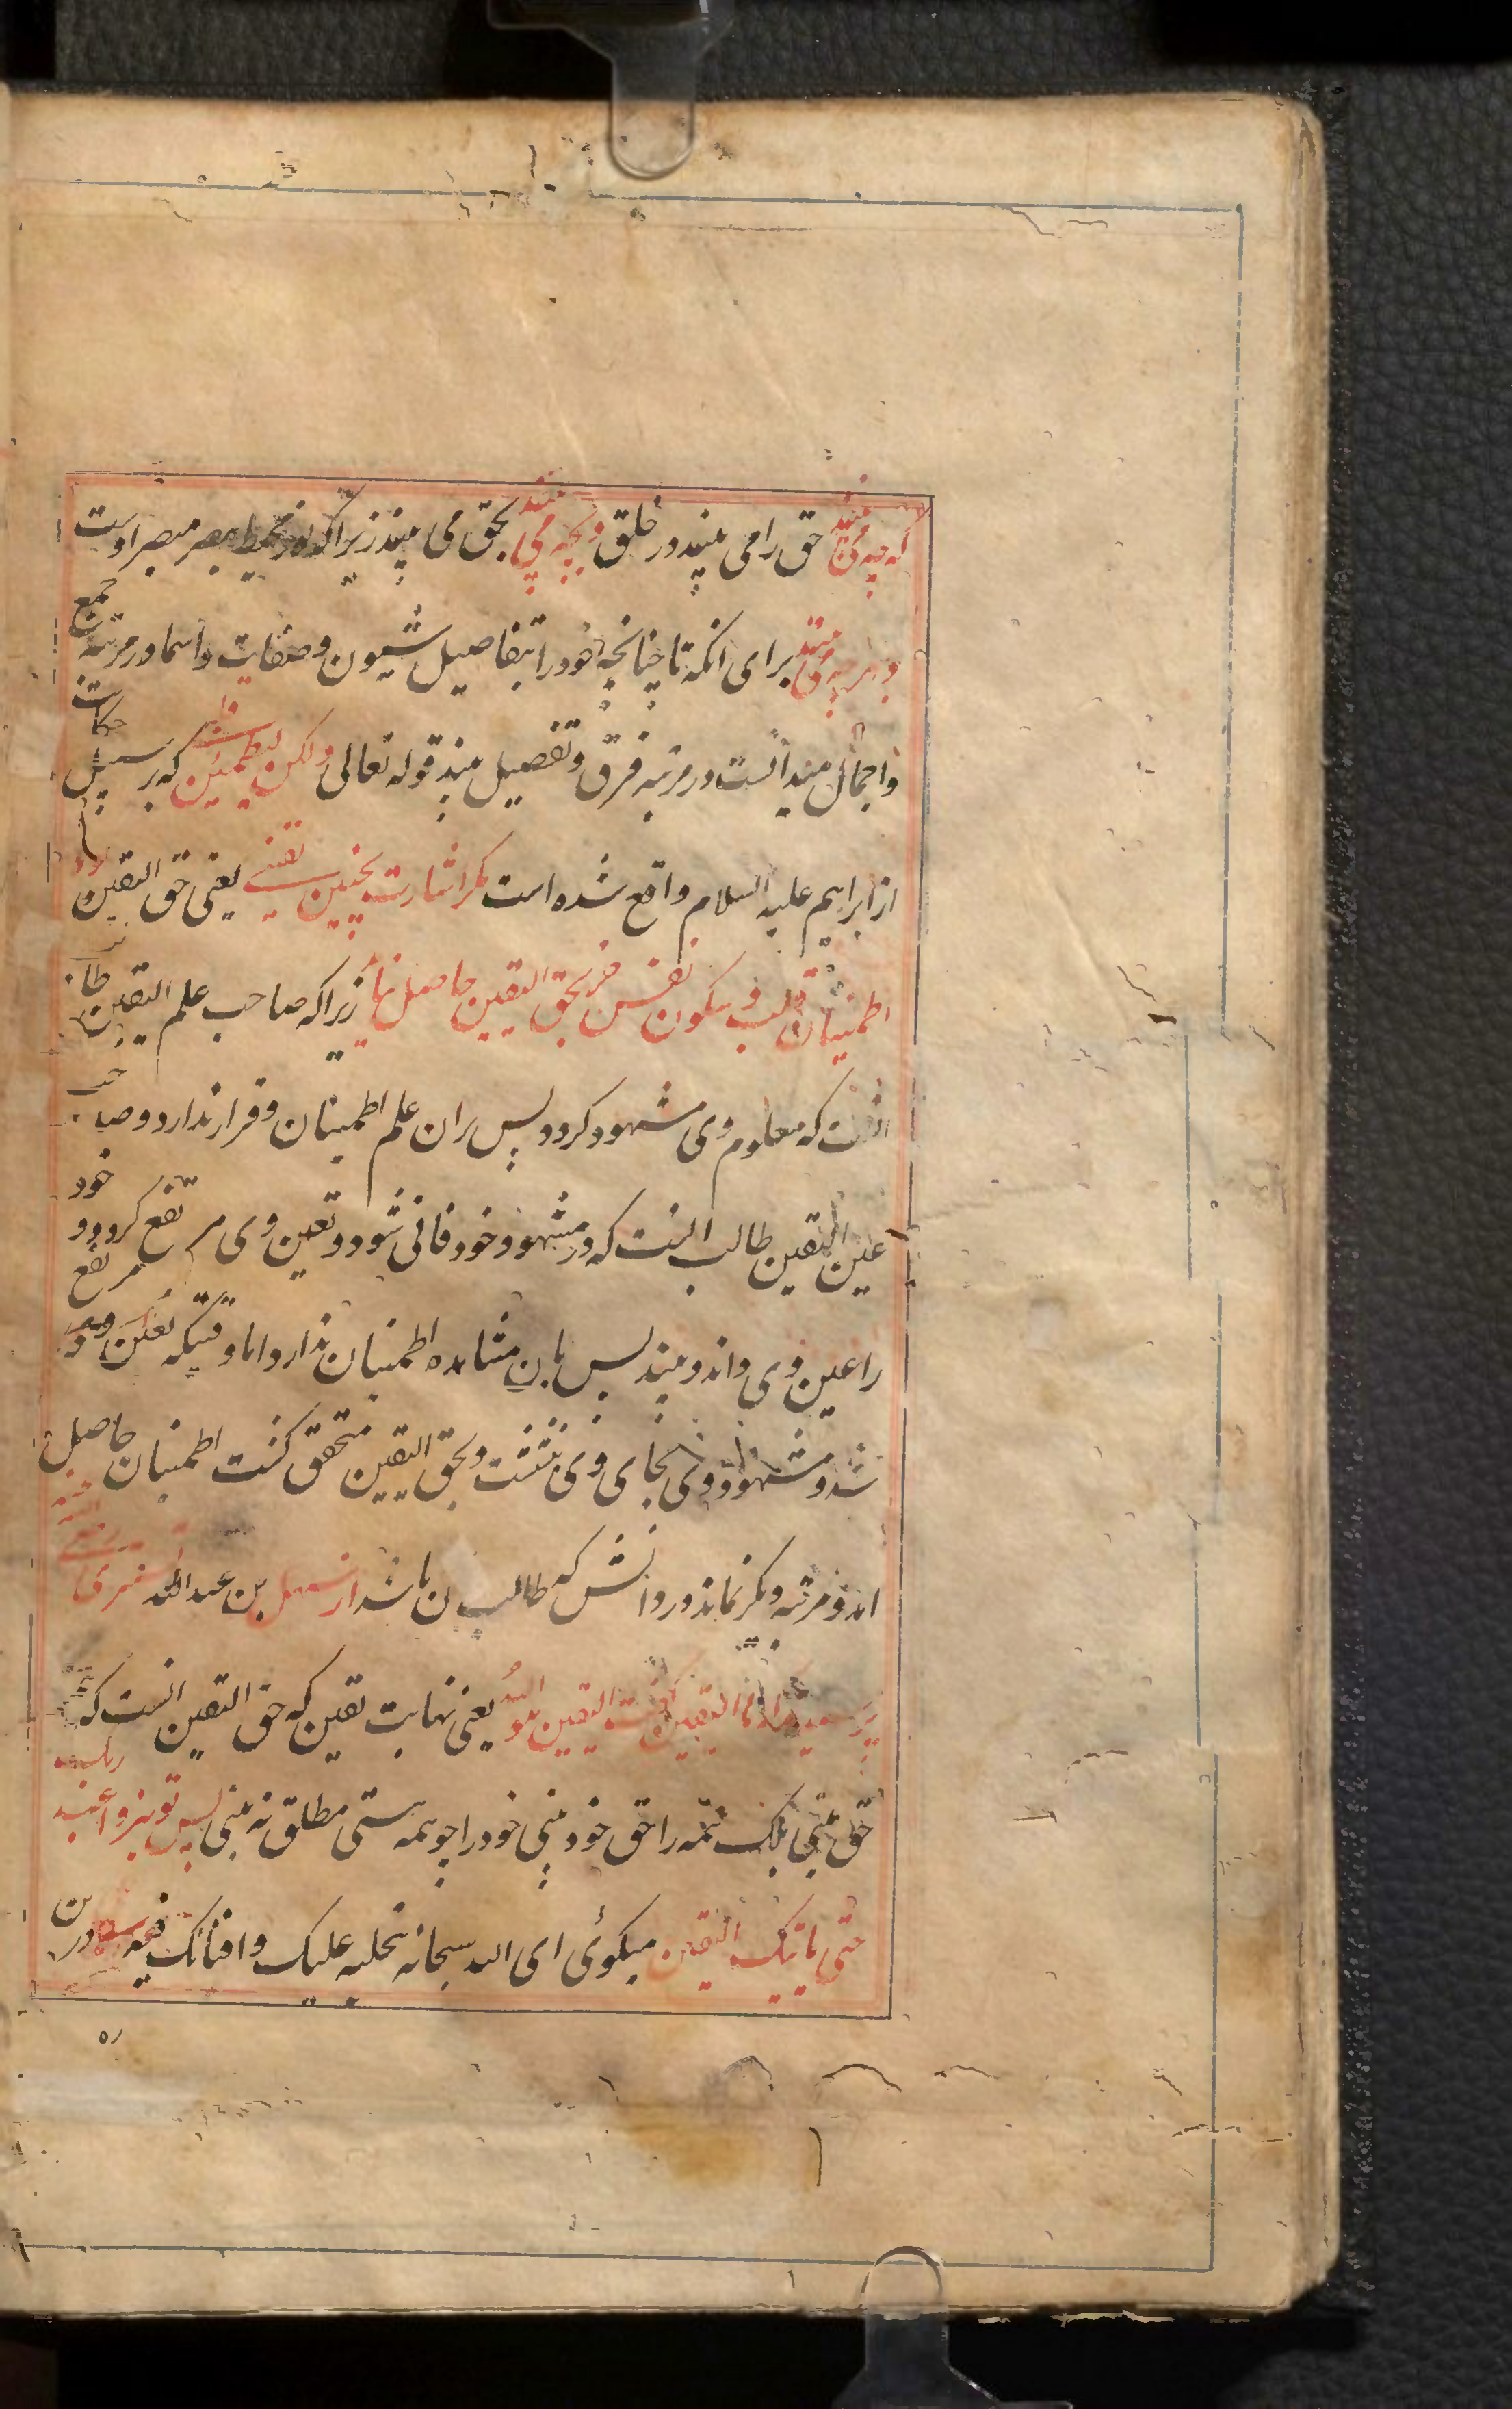 که چه می بیند حق را می بیند در خلق و بچه می بیند بحق می بیند زیرا که نور محیط بصر مبصر اوست
و بهر چه می بیند برای انکه تا چنانچه خود را بتفاصیل شیون و صفات و اسما در مرتبه جمع
و اجمال میدانست در مرتبه فرق و تفصیل بیند قوله تعالی ولکن لیطمئن که بر سبیل حکایت
از ابراهیم علیه السلام واقع شده است مگر اشارت بچنین یقینی یعنی حق الیقین بود
اطمینان قلب و سکون نفس جز بحق الیقین حاصل نیاید زیرا که صاحب علم الیقین طالب
انست که معلوم وی مشهود کردد پس بران علم اطمینان و قرار ندارد و صاحب
عین الیقین طالب انست که در مشهود خود فانی شود و تعین وی مرتفع کردد و خود
را عین وی داند و بیند پس باین مشاهده اطمینان ندارد اما وقتیکه تعین وی مرتفع
شد و مشهود وی بجای وی بنشست و بحق الیقین متحقق کشت اطمینان حاصل
اند و مرتبه دیکر نماند ورو انش که طالب ان باشد از سهل بن عبد الله تستری
پرسیدند ما الیقین گفت الیقین هو الله یعنی نهایت یقین که حق الیقین انست که
حق بینی بلک همه را حق خود بینی خود را چو همه هستی مطلق نه بینی پس تو نیز واعبد ربک
حتی یاتیک الیقین میکوئی ای الله سبحانه بتجلیه علیک و افنائک فیه درین